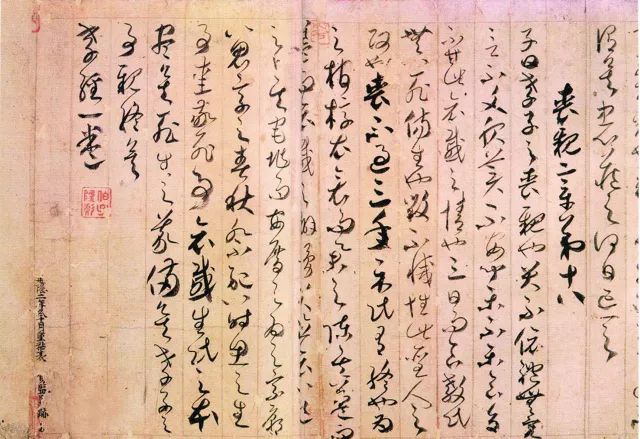 謂矣忠心藏之何日忘之
喪親章第十八
子曰孝子之喪親也哭不偯禮無容
言不文服美不安聞樂不樂食旨
不甘此哀戚之情也三日而食教民
無以死傷生也毀不滅性此聖人之
政也喪不過三年示民有終也為
之棺椁衣衾而舉之陳其簠簋而
哀戚之擗踊哭泣哀以送
之卜其宅兆而安厝之為之宗廟
以鬼享之春秋祭祀以時思之生
事愛敬死事哀戚生民之本
盡矣死生之義備矣孝子之
事親終矣
孝經一卷